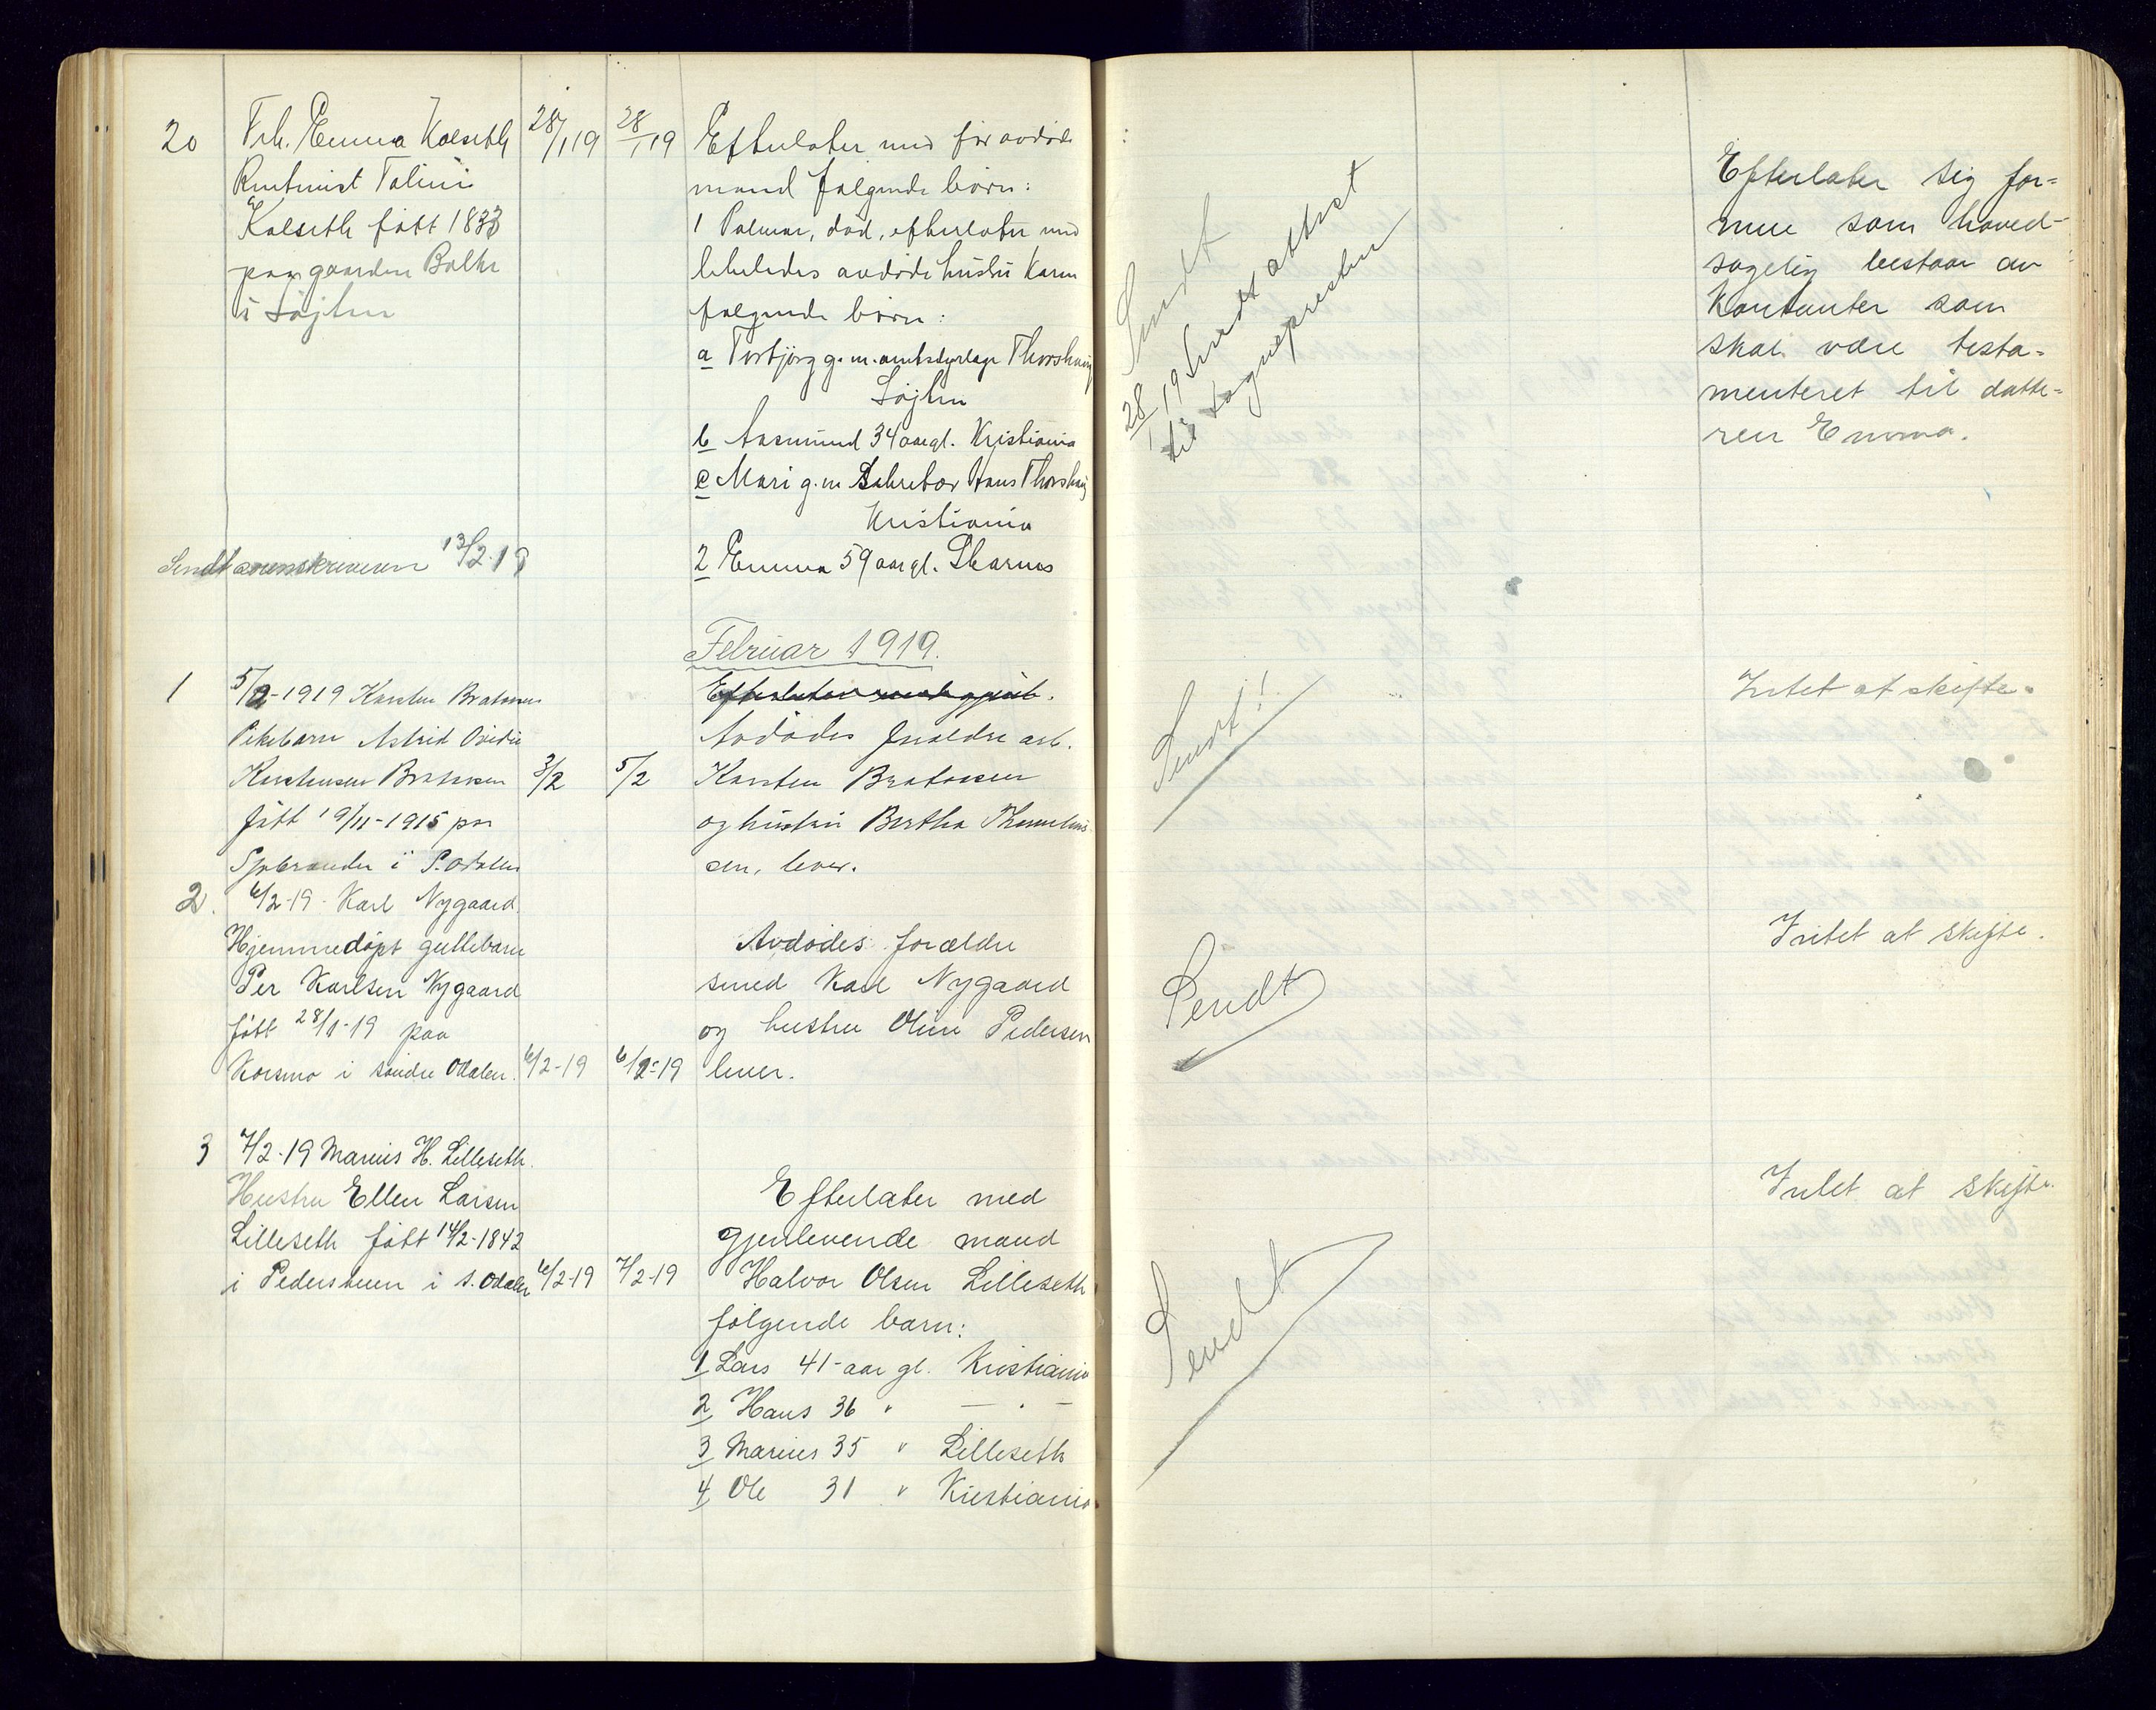 20
Frk. Emma Kolseth
Rentenist Taline
Kolseth født 1833
paa gaarden Bolke
i Løjten
28/1 19
28/1 19
Efterlater med før avdøde
mand følgende børn:
1 Palmar, død, efterlater med
likeledes avdøde hustru Karen
følgende børn:
a Torbjørg g. m. Thorshaug
Løjten
b Aasmund 34 aar gl. Kristiania
c Mari g. m. Sekretær Hans Thorshaug
Kristiania
2 Emma 59 aar gl. Skarnes
Sendt sorenskriveren 13/2-19
Februar 1919.
1
5/2-1919 Karsten Brataasen
Pikebarn Astrid
Karstensen Brataasen
født 19/11-1915 paa
Sjøbranden i S. Odalen
3/2
5/2
Avdødes forældre arb.
Karsten Brataasen
og hustru Bertha
sen, lever.
2.
6/2-19 - Karl Nygaard.
Hjemmedøpt guttebarn
Per Karlsen Nygaard
født 28/1-19 paa
Korsmo i søndre Odalen.
6/2-19
6/2-19
Avdødes forældre
smed Karl Nygaard
og hustru Oline Pedersen
lever.
3
7/2-19 Marius H. Lilleseth.
Hustru Ellen Larsen
Lilleseth født 14/2-1842
i Pedersheuen i S. Odalen
6/2-19
7/2-19
Efterlater med
gjenlevende mand
Halvor Olsen Lilleseth
følgende barn:
1 Lars 41-aar gl. Kristiania
2 Hans 36 " — " —
3 Marius 35 " Lilleseth
4 Ole 31 " Kristiania
Sendt
28/1 19 Sendt attest
til sognepresten
Efterlater sig for-
mue som hoved-
sagelig bestaar av
Kontanter som
skal være testa-
menteret til datte-
ren Emma.
Sendt!
Intet at skifte.
Sendt
Intet at skifte.
Sendt
Intet at skifte.